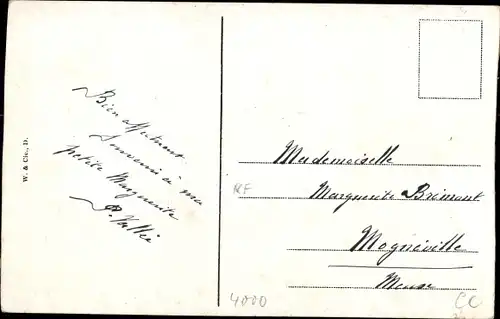 W. & Cie., D.
Bien affectueux
Souvenir à ma
petite Marguerite
Mademoiselle
Marguerite Brimont
Mognéville
Meuse
RF
4000
CC